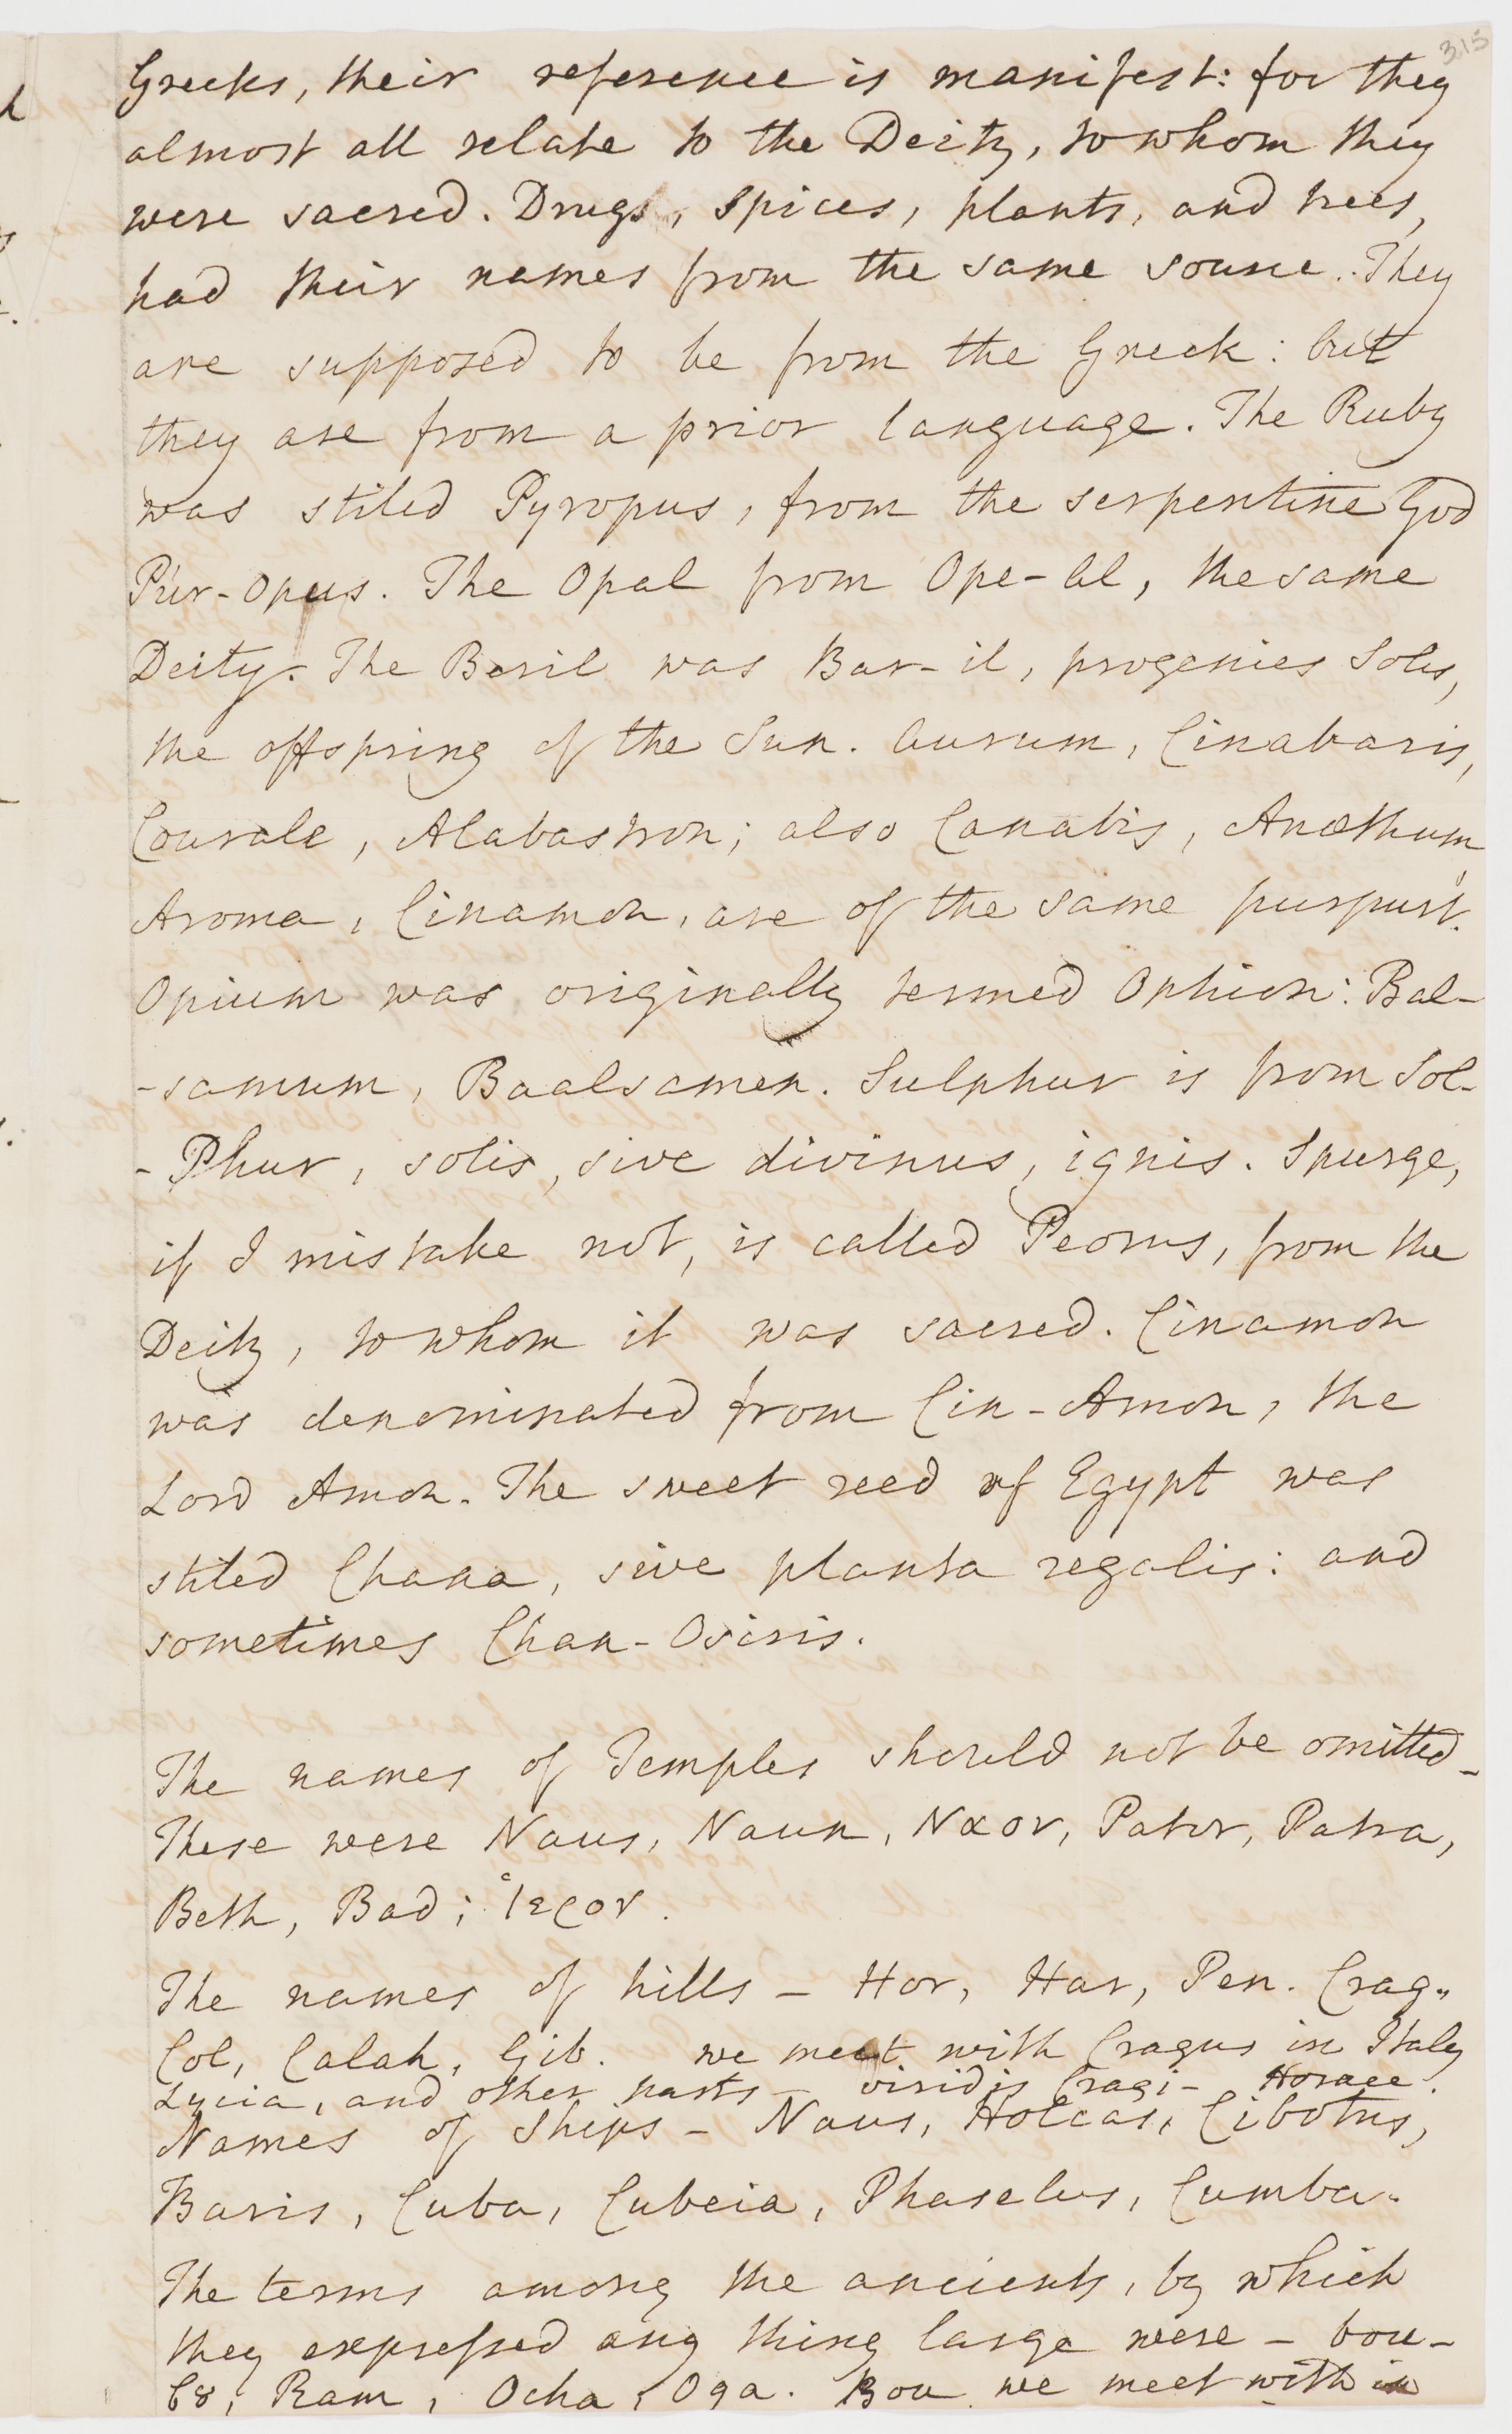 315
Greeks, their reference is manifest: for they
almost all relate to the Deity, to whom they
were sacred. Drugs, spices, plants, and trees,
had their names from the same source. They
are supposed to be from the Greek: but
they are from a prior language. The Ruby
was stiled Pyropus, from the serpentine God
Pur-opus. The Opal from Ope-al, the same
Deity. The Beril was Bar-il, progenies Solis,
the offspring of the Sun. Aurum, Cinabaris,
Courale, Alabastron; also Canabis, Anæthum,
Aroma, Cinamon, are of the same purpurt.
Opium was originally termed Ophion: Bal-
-samum, Baalsamen. Sulphur is from Sol-
-Phur, solis, sive divinus, ignis. Spurge,
if I mistake not, is called Peorus, from the
Deity, to whom it was sacred. Cinamon
was denominated from Cin-Amon, the
Lord Amon. The sweet reed of Egypt was
stiled Chana, sive planta regalis: and
sometimes Chan-Osiris.
The names of Temples should not be omitted_
These were Naus, Naun, Ναον, Pator, Patra,
Beth, Bad; Ἱερον.
The names of hills – Hor, Har, Pen. Crag.
Col, Calah, Gib. we meet with Cragus in Italy
Lycia, and other parts – viridis Cragi – Horace.
Names of Ships – Naus, Holcas, Cibotus,
Baris, Cuba, Cubeia, Phaselus, Cumba.
The terms among the ancients, by which
they expressed any thing large were – bou-
βȣ, Ram, Ocha, Oga. Bou we meet with in